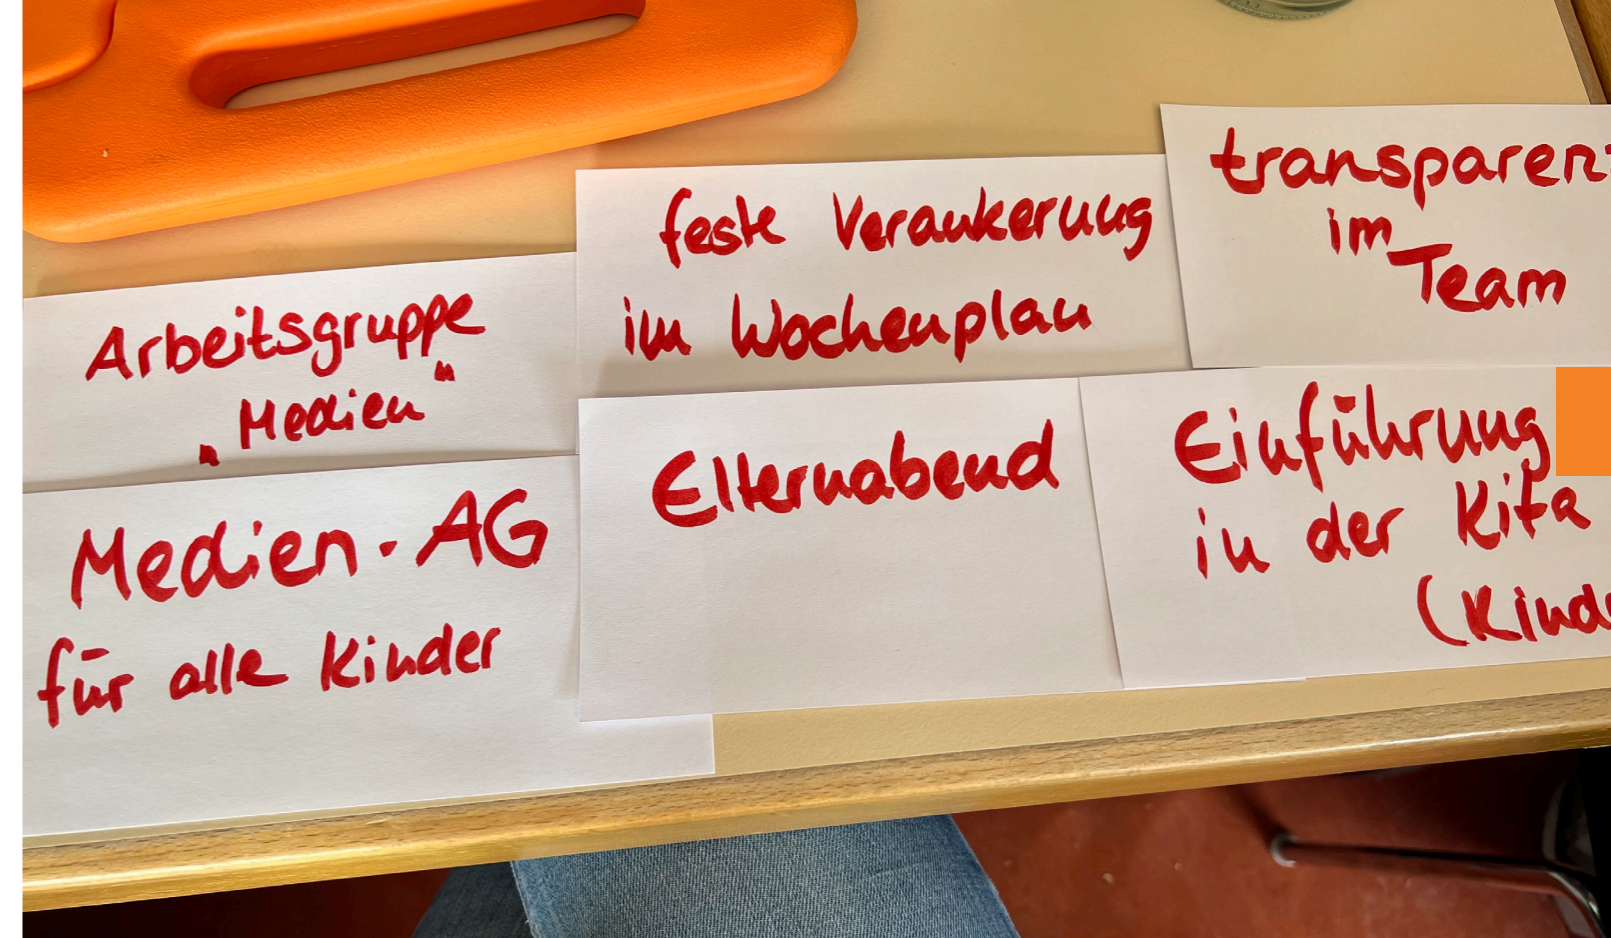 Arbeitsgruppe
„Medien"
feste Verankerung
im Wochenplan
transparent
im
Team
Medien-AG
für alle Kinder
Elternabend
Einführung
in der Kita
(Kind